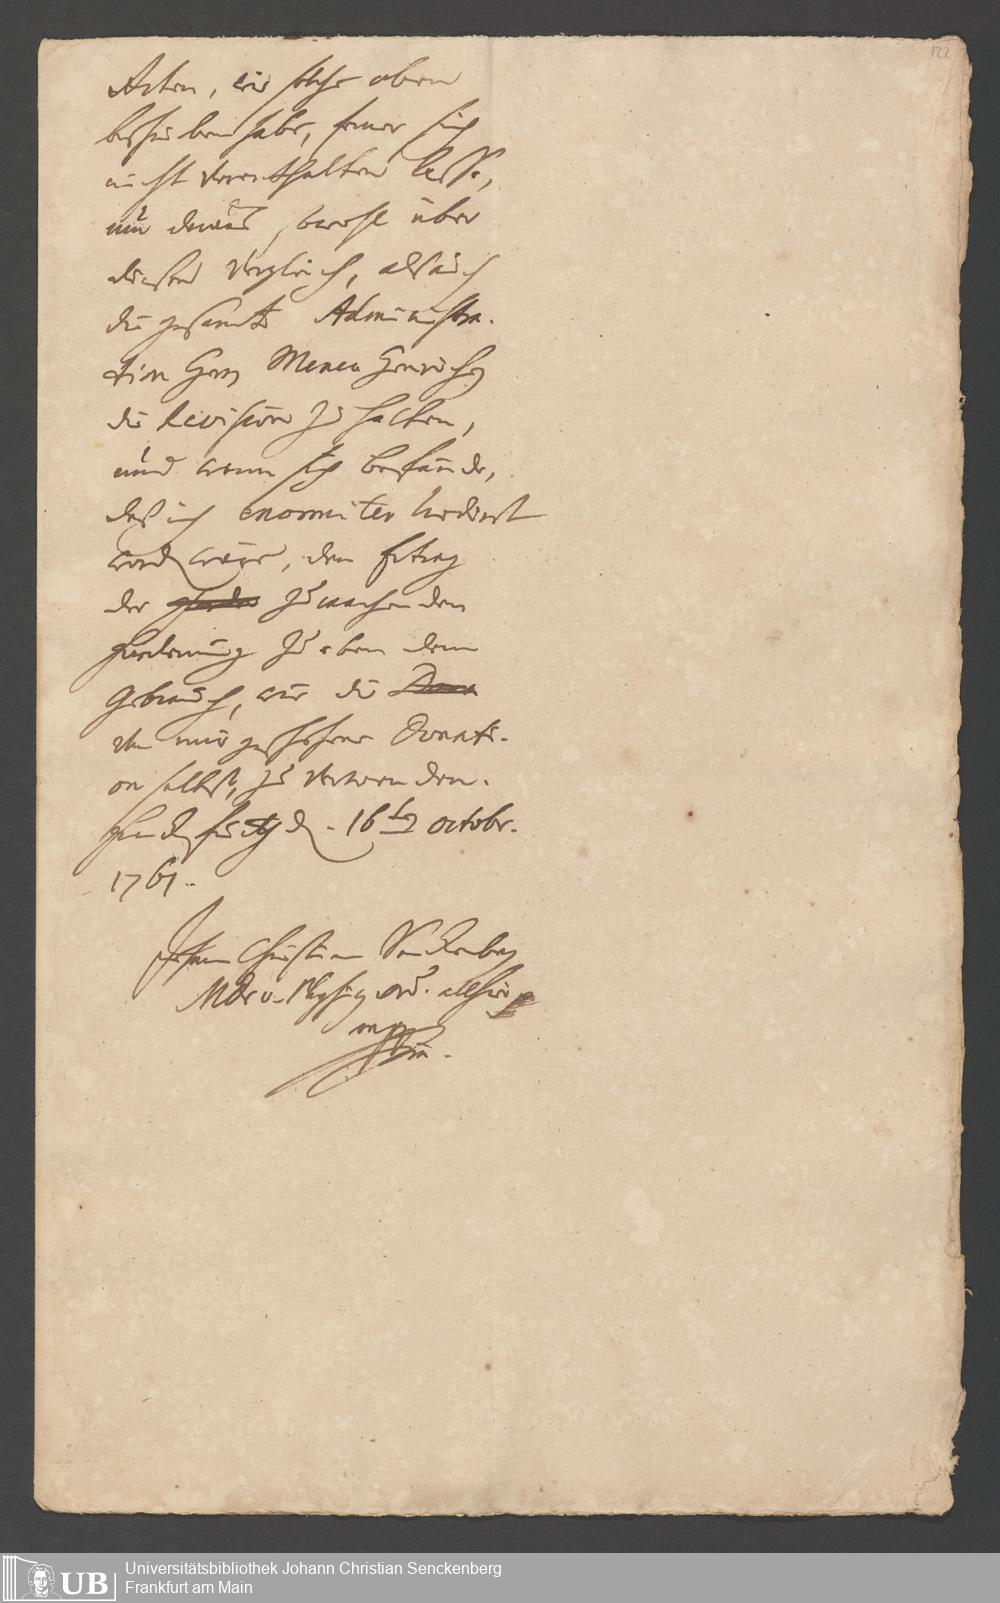 122
Acten, wie solche oben
beschrieben habe, ferner sich
nicht vorenthalten lasse,
um daraus sowohl über
diesen Vergleich, als auch
die gesamte Administra-
tion Herrn
die Revision zu halten,
und wenn sich befände,
daß ich enormiter laedirt
worden wäre, den Ertrag
der zu machenden
Forderung zu eben dem
Gebrauch, wie die
von mir geschehene Donati-
on selbst, zu verwenden.
Franckfurth d. 16ten octobr.
1761.
Johann Christian Senckenberg
MDr u. Physicus ord. allhier
mppria.
UB
Universitätsbibliothek Johann Christian Senckenberg
Frankfurt am Main